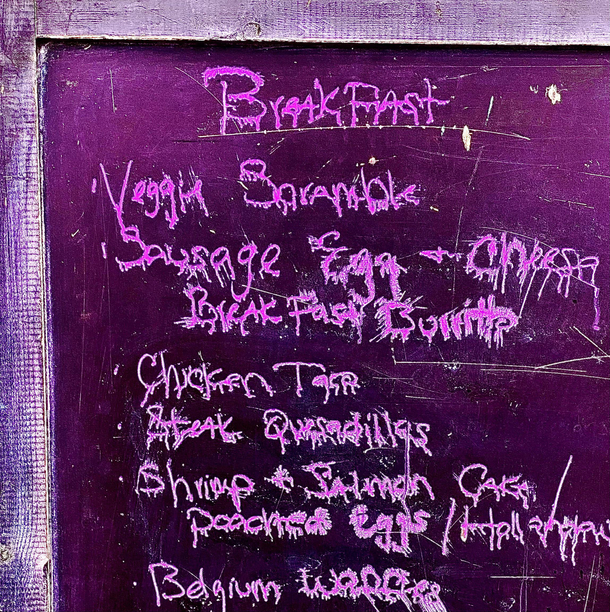 BreakFast
Veggie Scramble
Sausage Egg + Cheese
BreakFast Burrito
Chicken Taco
Steak Quesadillas
Shrimp + Salmon Cake
Poached Eggs /
Belgium Waffles